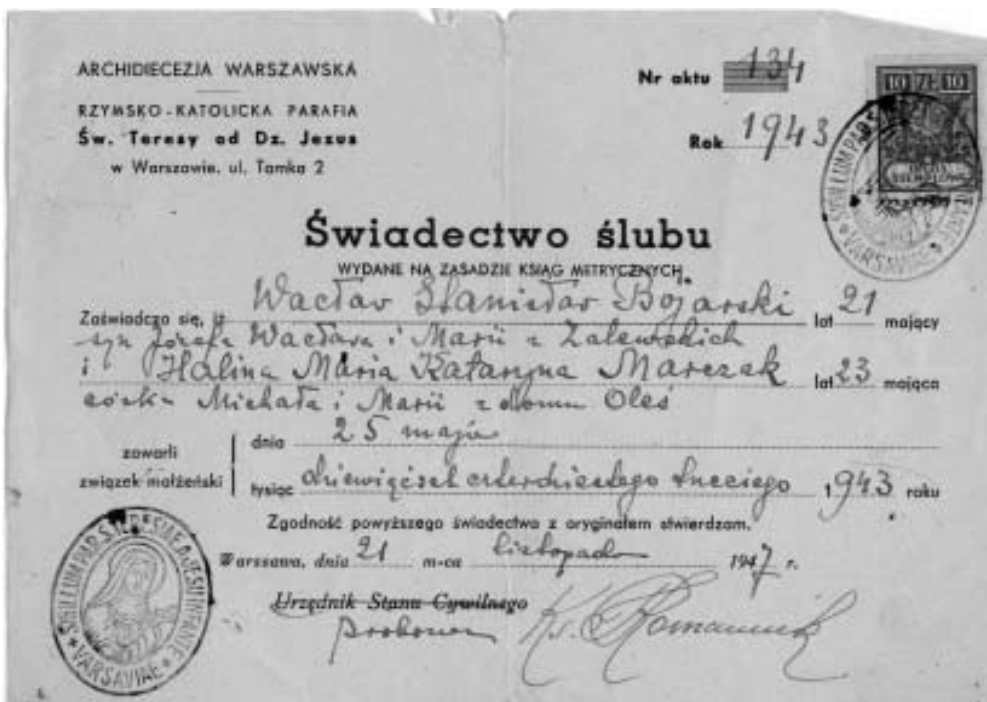 ARCHIDIECEZJA WARSZAWSKA
RZYMSKO-KATOLICKA PARAFIA
Św. Teresy od Dz. Jezus
w Warszawie, ul. Tamka 2
Nr aktu 134
Rok 1943
10 ZŁ 10
Świadectwo ślubu
WYDANE NA ZASADZIE KSIĄG METRYCZNYCH.
Zaświadcza się, iż Wacław Stanisław Bojarski lat 21 mający
syn Józefa Wacława i Marii z Zalewskich
i Halina Maria Katarzyna Marczak lat 23 mająca
córka Michała i Marii z domu Oleś
zawarli związek małżeński
dnia 25 maja
tysiąc dziewięćset czterdziestego trzeciego 1943 roku
Zgodność powyższego świadectwa z oryginałem stwierdzam.
Warszawa, dnia 21 m-ca listopada 1947 r.
Urzędnik Stanu Cywilnego
Proboszcz Ks. Romaniuk
SIGILLUM PAR. S. TERESIAE A JESU INFANTE
VARSAVIAE